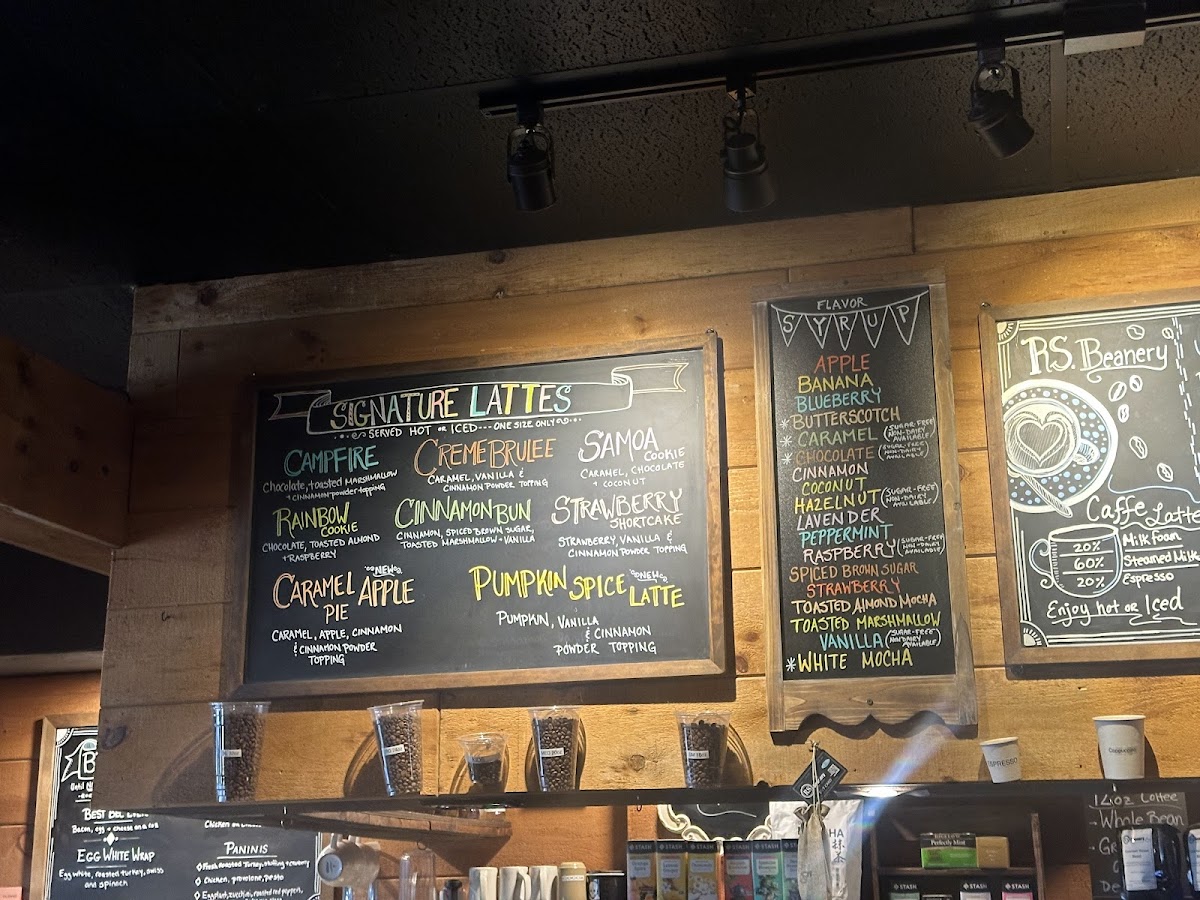 SIGNATURE LATTES
SERVED HOT or ICED---ONE SIZE ONLY
CAMPFIRE
Chocolate, toasted MARSHMALLOW
+ CINNAMON powder topping
CREME BRULEE
CARAMEL, VANILLA &
CINNAMON POWDER TOPPING
SAMOA
COOKIE
CARAMEL, CHOCOLATE
+ COCONUT
RAINBOW
COOKIE
CHOCOLATE, TOASTED ALMOND
+ RASPBERRY
CINNAMON BUN
CINNAMON, SPICED BROWN SUGAR,
TOASTED MARSHMALLOW + VANILLA
STRAWBERRY
SHORTCAKE
STRAWBERRY, VANILLA &
CINNAMON POWDER TOPPING
NEW
CARAMEL APPLE
PIE
CARAMEL, APPLE, CINNAMON
& CINNAMON POWDER
TOPPING
PUMPKIN SPICE NEW
LATTE
PUMPKIN, VANILLA
& CINNAMON
POWDER TOPPING
FLAVOR
SYRUP
APPLE
BANANA
BLUEBERRY
*BUTTERSCOTCH
CARAMEL (SUGAR-FREE NON-DAIRY AVAILABLE)
*CHOCOLATE (SUGAR-FREE NON-DAIRY AVAILABLE)
CINNAMON
COCONUT
HAZELNUT (SUGAR-FREE NON-DAIRY AVAILABLE)
LAVENDER
PEPPERMINT
RASPBERRY (SUGAR-FREE NON-DAIRY AVAILABLE)
SPICED BROWN SUGAR
STRAWBERRY
TOASTED ALMOND MOCHA
TOASTED MARSHMALLOW
VANILLA (SUGAR-FREE NON DAIRY AVAILABLE)
*WHITE MOCHA
R.S. Beanery
Caffe Latte
20% Milk Foam
60% Steamed Milk
20% Espresso
Enjoy hot or Iced
ESPRESSO
Cappuccino
Bacon, egg + cheese on a roll
EGG WHITE WRAP
Egg white, roasted turkey, swiss
and spinach
PANINIS
Chicken, provolone, pesto
Eggplant, zucchini, roasted red peppers,
14oz COFFEE
Whole Bean
Perfectly Mint
STASH
STASH
STASH